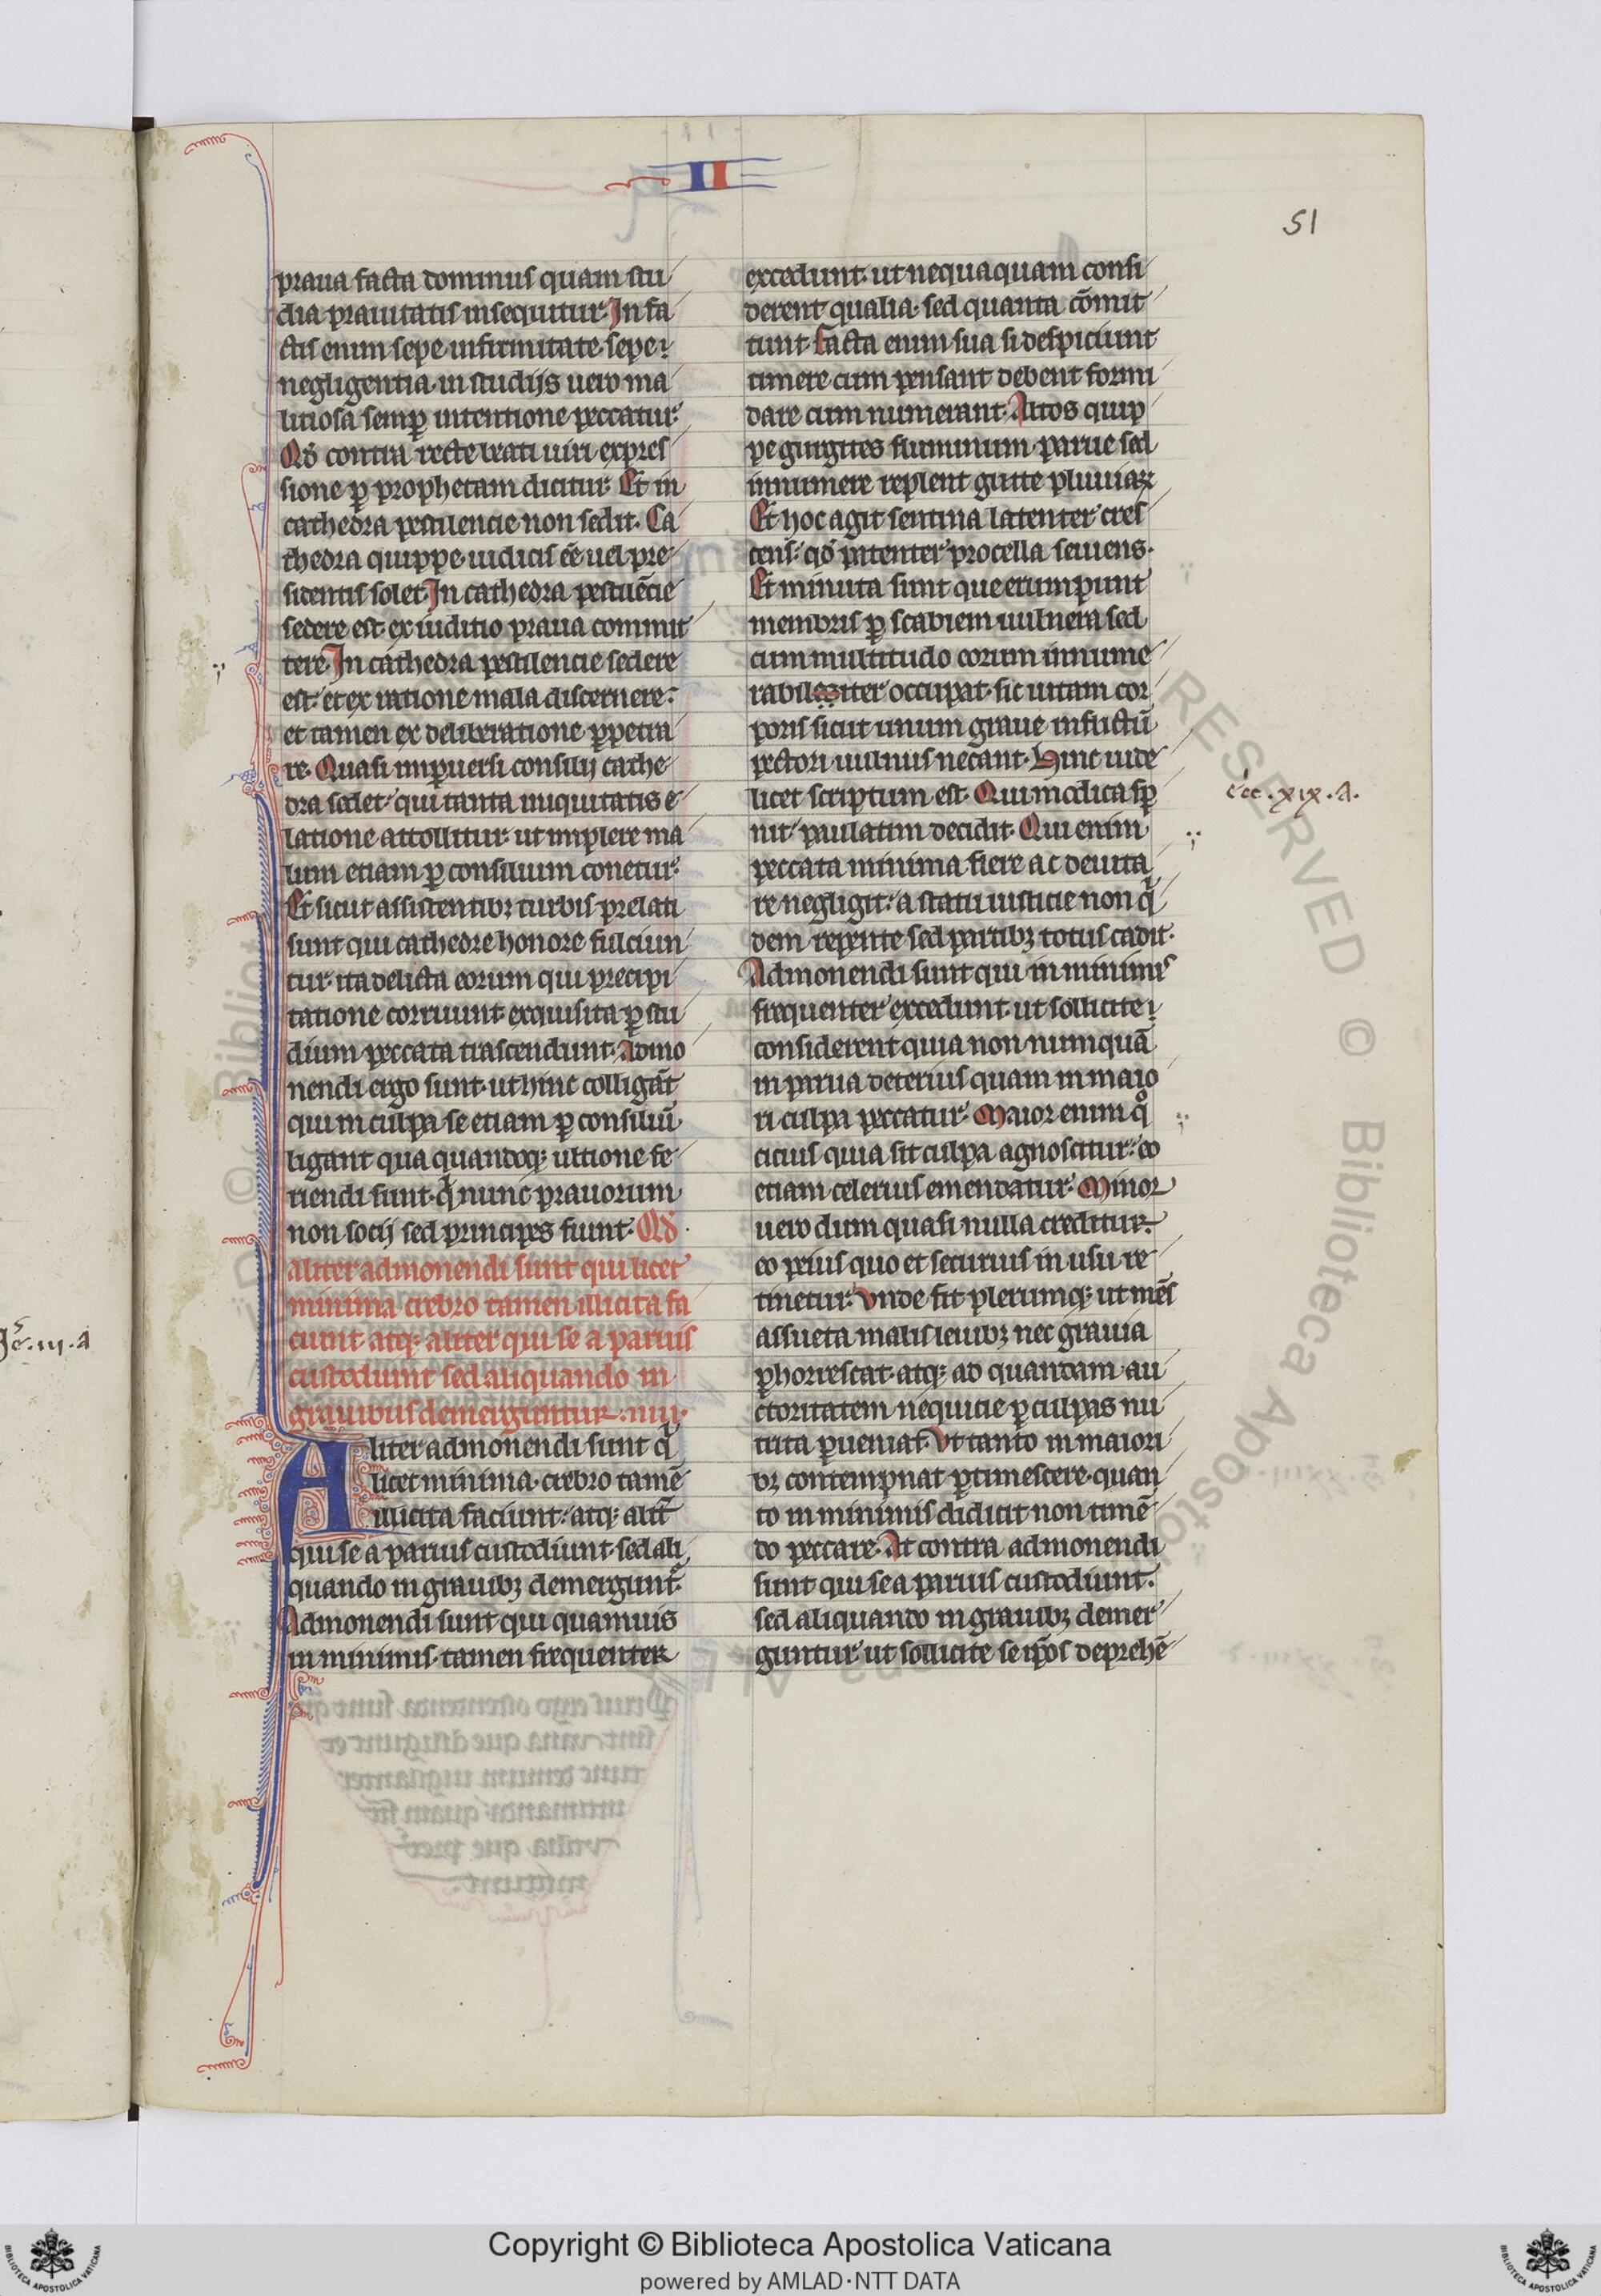 II
51
praua facta dominus quam stu
dia prauitatis insequitur. In fa
ctis enim sepe infirmitate. sepe
negligentia. in studijs uero ma
litiosa semꝑ intentione peccatur.
Qđ contra recte beati uiri expres
sione ꝑ prophetam dicitur. Et in
cathedra pestilencie non sedit. Ca
thedra quippe. iudicis eē uel pre
sidentis solet. In cathedra pestilēcie
sedere est. ex iuditio praua commit
tere. In cathedra pestilencie sedere
est. et ex ratione mala discernere.
et tamen ex deliberatione ꝑpetra
re. Quasi in ꝑuersi consilij cathe
dra sedet. qui tanta iniquitatis e
latione attollitur. ut implere ma
lum etiam ꝑ consilium conetur.
Et sicut assistentibꝫ turbis prelati
sunt qui cathedre honore fulciun
tur. ita delicta eorum qui precipi
tatione corruunt exquisita ꝑ stu
dium peccata trascendunt. Admo
nendi ergo sunt. ut hinc colligāt
qui in culpa se etiam ꝑ consiliū
ligant qua quandoqꝫ ultione fe
riendi sunt. qͥ nunc prauorum
non socij sed principes fiunt. Qđ
aliter admonendi sunt qui licet
minima crebro tamen illicita fa
ciunt. atqꝫ aliter qui se a paruis
custodiunt sed aliquando in
grauibus demerguntur. .iiii.
Aliter admonendi sunt qͥ
licet minima. crebro tamē
illicita faciunt. atqꝫ alit̄
qui se a paruis custodiunt. sed ali
quando in grauibꝫ demergunt᷑.
Admonendi sunt qui quamuis
in minimis. tamen frequenter
excedunt. ut nequaquam consi
derent qualia. sed quanta cōmit
tunt. facta enim sua si despiciunt
timere cum pensant. debent formi
dare cum numerant. Altos quip
pe gurgites fluminum. parue sed
innumere replent gutte pluuiaꝝ
Et hoc agit sentina latenter cres
cens. qđ patenter procella seuiens.
Et minuta sunt que erumpunt
membris ꝑ scabiem uulnera sed
cum multitudo eorum innume
rabiliter occupat. sic uitam cor
poris sicut unum graue inflictū
pectori uulnus necant. Hinc uide
licet scriptum est. Qui modica sꝑ
nit. paulatim decidit. Qui enim
ecc. xix. a.
peccata minima flere ac deuita
re negligit. a statu iusticie non qͥ
dem repente sed partibꝫ totus cadit.
Admonendi sunt qui in minimis
frequenter excedunt. ut sollicite
considerent quia non numquā
in parua deterius quam in maio
ri culpa peccatur. Maior enim qͦ
cicius quia sit culpa agnoscitur. eo
etiam celerius emendatur. Minor
uero dum quasi nulla creditur.
eo peius quo et securius in usu re
tinetur. Vnde fit plerumqꝫ ut mēs
assueta malis leuibꝫ nec grauia
ꝑhorrescat. atqꝫ ad quandam au
ctoritatem nequicie ꝑ culpas nu
trita ꝑueniat. Vt tanto in maiori
bꝫ contempnat ꝑtimescere. quan
to in minimis didicit non timē
do peccare. At contra admonendi
sunt qui se a paruis custodiunt.
sed aliquando in grauibꝫ demer
guntur ut sollicite se ip̄os deprehē
Copyright © Biblioteca Apostolica Vaticana
powered by AMLAD·NTT DATA